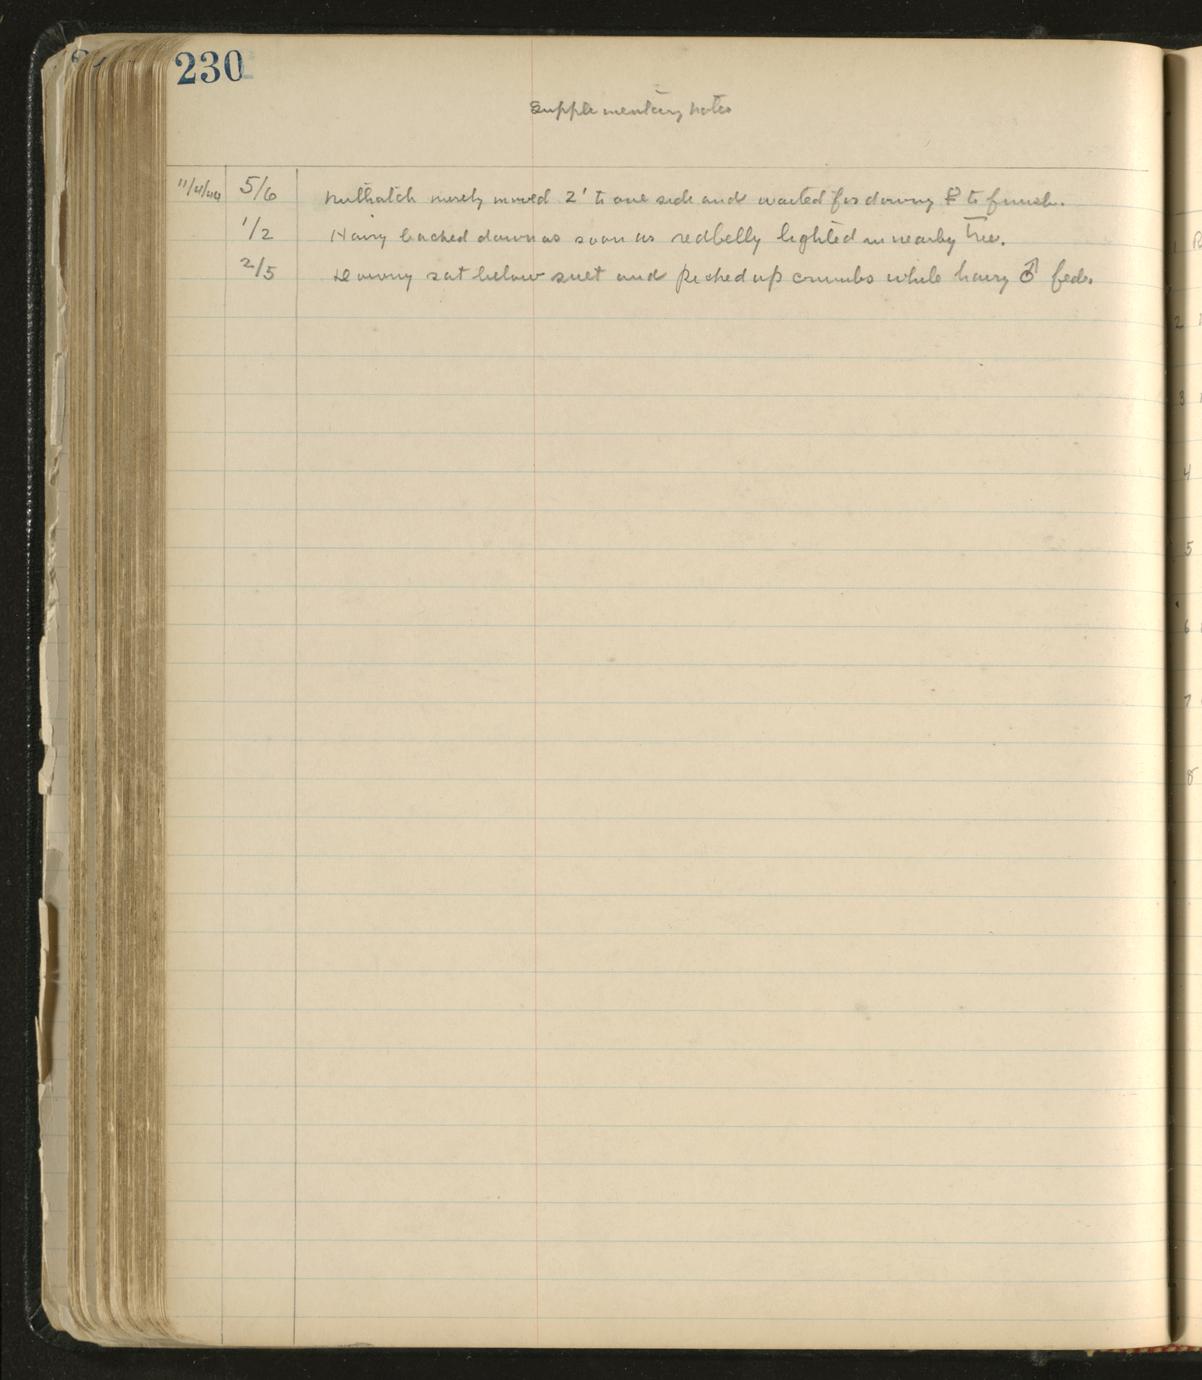 230
Supplementary notes
11/4/44 5/6 Nuthatch merely moved 2' to one side and waited for downy ♀ to finish.
1/2 Hairy backed down as soon as redbelly lighted in nearby tree.
2/5 Downy sat below suet and picked up crumbs while hairy ♂ fed.
2
3
4
5
6
7
8